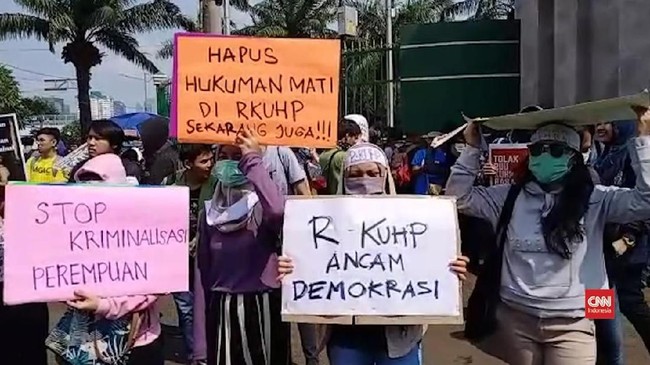 HAPUS
HUKUMAN MATI
DI RKUHP
SEKARANG JUGA!!!
STOP
KRIMINALISASI
PEREMPUAN
R-KUHP
ANCAM
DEMOKRASI
TOLAK
CNN
Indonesia